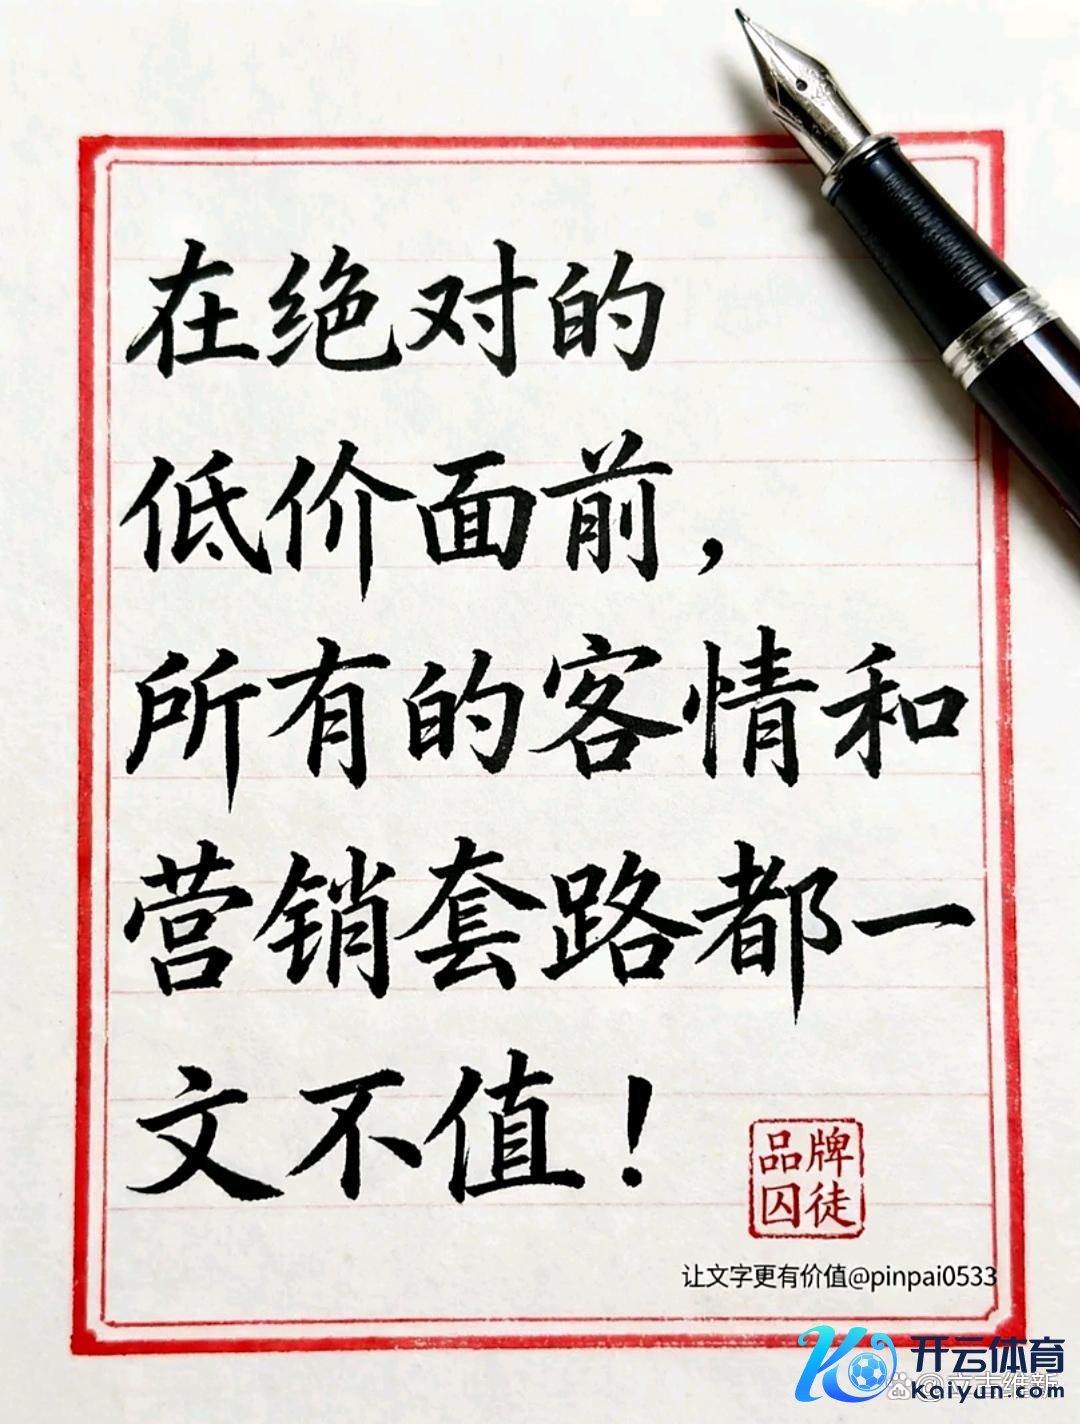 在绝对的
低价面前，
所有的客情和
营销套路都一
文不值！
品牌
囚徒
让文字更有价值@pinpai0533
开云体育
Kaiyun.com